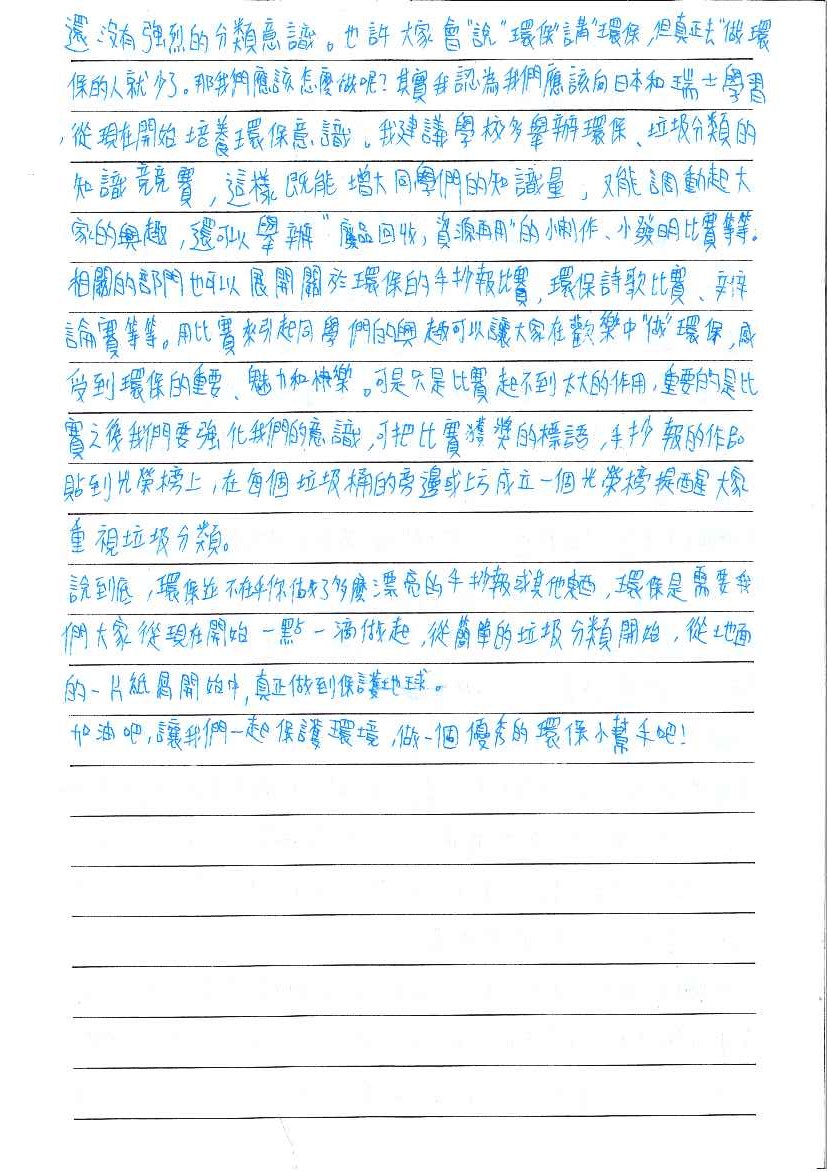 還沒有強烈的分類意識。也許大家會"說"環保"講"環保,但真正去"做"環
保的人就少了。那我們應該怎麼做呢?其實我認為我們應該向日本和瑞士學習
,從現在開始培養環保意識。我建議學校多舉辦環保、垃圾分類的
知識競賽,這樣既能增大同學們的知識量,又能調動起大
家的興趣,還可以舉辦"廢品回收,資源再用"的小制作、小發明比賽等等。
相關的部門也可以展開關於環保的手抄報比賽,環保詩歌比賽、辯
論賽等等。用比賽來引起同學們的興趣可以讓大家在歡樂中"做"環保,感
受到環保的重要、魅力和快樂。可是只是比賽起不到太大的作用,重要的是比
賽之後我們要強化我們的意識,可把比賽獲獎的標語,手抄報的作品
貼到光榮榜上,在每個垃圾桶的旁邊或上方成立一個光榮榜提醒大家
重視垃圾分類。
說到底,環保並不在乎你做了多麼漂亮的手抄報或其他東西,環保是需要我
們大家從現在開始一點一滴做起,從簡單的垃圾分類開始,從地面
的一片紙屑開始中,真正做到保護地球。
加油吧,讓我們一起保護環境,做一個優秀的環保小幫手吧!